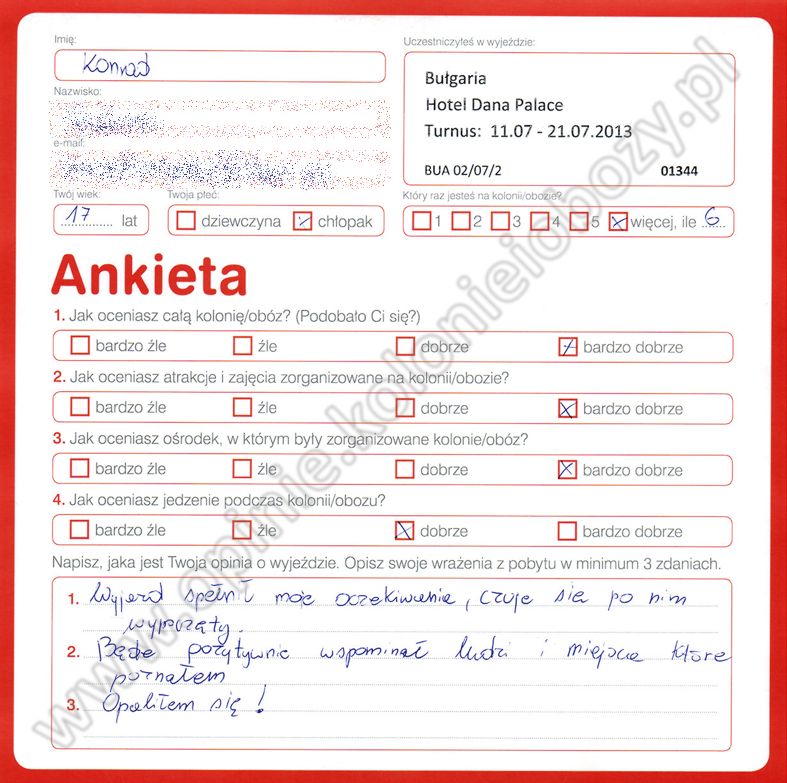 Imię:
Konrad
Uczestniczyłeś w wyjeździe:
Bułgaria
Hotel Dana Palace
Turnus: 11.07 - 21.07.2013
BUA 02/07/2
01344
Nazwisko:
e-mail:
Twój wiek:
17 lat
Twoja płeć:
dziewczyna chłopak
Który raz jesteś na kolonii/obozie?
1 2 3 4 5 więcej, ile 6
Ankieta
1. Jak oceniasz całą kolonię/obóz? (Podobało Ci się?)
bardzo źle źle dobrze bardzo dobrze
2. Jak oceniasz atrakcje i zajęcia zorganizowane na kolonii/obozie?
bardzo źle źle dobrze bardzo dobrze
3. Jak oceniasz ośrodek, w którym były zorganizowane kolonie/obóz?
bardzo źle źle dobrze bardzo dobrze
4. Jak oceniasz jedzenie podczas kolonii/obozu?
bardzo źle źle dobrze bardzo dobrze
Napisz, jaka jest Twoja opinia o wyjeździe. Opisz swoje wrażenia z pobytu w minimum 3 zdaniach.
1. Wyjazd spełnił moje oczekiwania, czuje się po nim
wypoczęty.
2. Będe pozytywnie wspominał ludzi i miejsca które
poznałem
3. Opaliłem się!
www.opinie.kolonieiobozy.pl